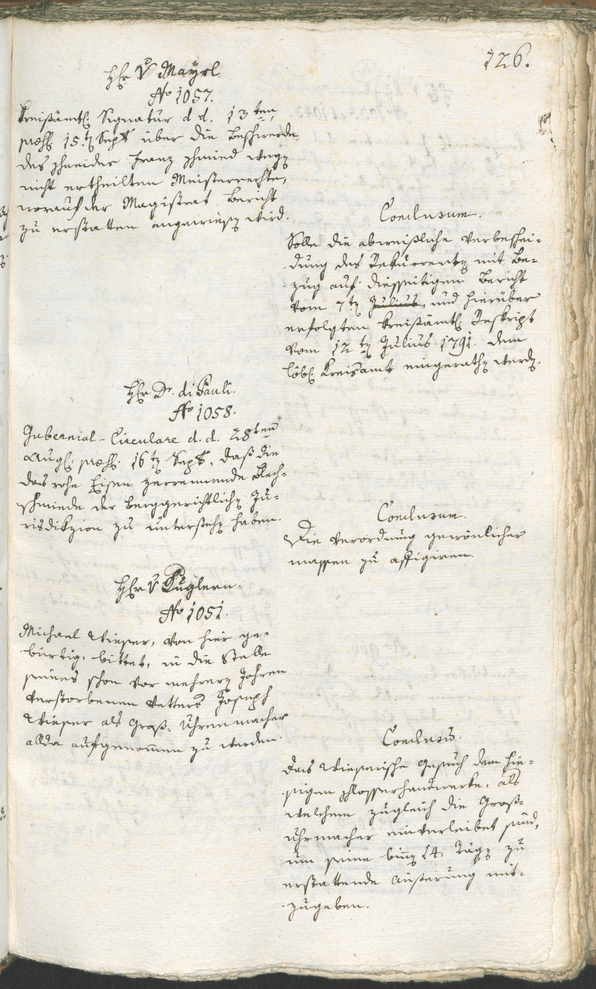 126.
Hr. v Mayrl
No 1057.
Kreißämtl. Signatur d. d. 13ten,
præs. 15. Sept. über die Beschwerde
des Schneider Franz Schmied wegen
nicht ertheilten Meisterrechte,
worauf der Magistrat Bericht
zu erstatten angewiesen wird.
Conclusum.
Solle die abweisliche Verbeschei-
dung des Rekurrenten mit Be-
zug auf diesseitigen Bericht
vom 7ten Julius, und hierüber
erfolgten kreisämtl. Reskript
vom 12ten Julius 1791. dem
löbl. Kreisamt eingerathen werden.
Hr. Dr. di Pauli.
No 1058.
Gubernial-Circulare d. d. 28ten
Aug. præs. 16ten Sept., daß die
das rohe Eisen zerrennende Blech-
schmiede der berggerichtlichen Ju-
risdikzion zu unterstehen haben.
Conclusum.
Die Verordnung gewönlicher
massen zu affigiren.
Hr. v Kuglern.
No 1051.
Michael Wieser, von hier ge-
bürtig, bittet, in die Stelle
seines schon vor mehrern Jahren
verstorbenen Vetters Joseph
Wieser als Groß-Uhrenmacher
allda aufgenommen zu werden.
Conclusum.
Das Wieserische Gesuch dem hie-
sigen Schlosserhandwerke, als
welchem zugleich die Groß-
uhrmacher einverleibet sind,
um seine binnen 14. Tägen zu
erstattende Äusserung mit-
zugeben.